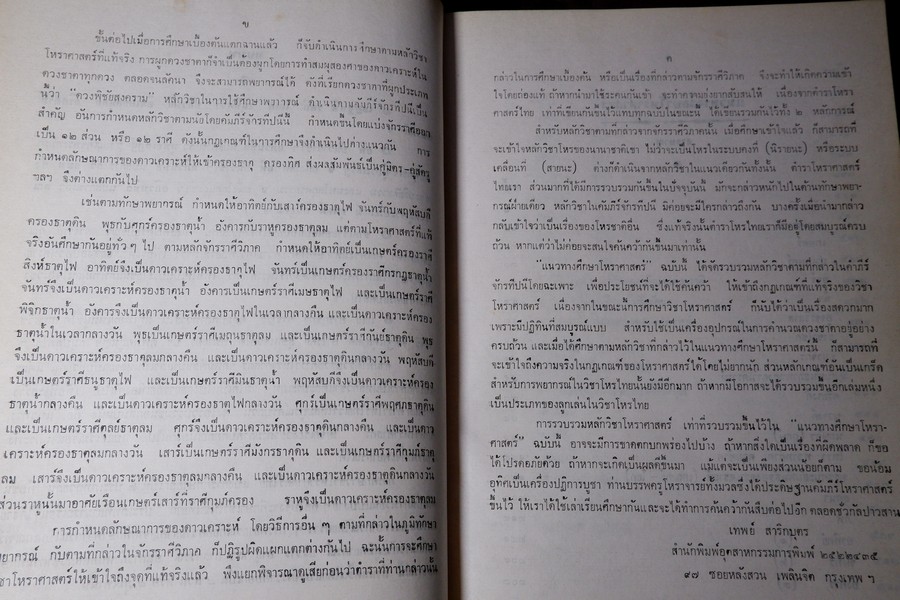 ข
ขั้นต่อไปเมื่อการศึกษาเบื้องต้นแตกฉานแล้ว ก็จับดำเนินการศึกษาตามหลักวิชา
โหราศาสตร์ที่แท้จริง การผูกดวงชาตาก็จำเป็นต้องผูกโดยการทำสมผุสองศาของดาวเคราะห์ใน
ดวงชาตาทุกดวง ตลอดจนลัคนา จึงจะสามารถพยากรณ์ได้ ดังที่เรียกดวงชาตาที่ผูกประเภท
นี้ว่า "ดวงพิชัยสงคราม" หลักวิชาในการใช้ศึกษาพยากรณ์ ดำเนินตามคัมภีร์จักรทีปนีเป็น
สำคัญ อันการกำหนดหลักวิชาตามนัยโดยคัมภีร์จักรทีปนี กำหนดขึ้นโดยแบ่งจักรราศีออก
เป็น ๑๒ ส่วน หรือ ๑๒ ราศี ดังนั้นกฎเกณฑ์ในการศึกษาจึงดำเนินไปต่างแนวกัน การ
กำหนดลักษณาการของดาวเคราะห์ให้เข้าครองธาตุ ครองทิศ ส่งผลสัมพันธ์เป็นคู่มิตร-คู่ศัตรู
ฯลฯ จึงต่างแตกกันไป
เช่นตามทักษาพยากรณ์ กำหนดให้อาทิตย์กับเสาร์ครองธาตุไฟ จันทร์กับพฤหัสบดี
ครองธาตุดิน พุธกับศุกร์ครองธาตุน้ำ อังคารกับราหูครองธาตุลม แต่ตามโหราศาสตร์ที่แท้
จริงอันศึกษากันอยู่ทั่ว ๆ ไป ตามหลักจักรราศีวิภาค กำหนดให้อาทิตย์เป็นเกษตร์ครองราศี
สิงห์ธาตุไฟ อาทิตย์จึงเป็นดาวเคราะห์ครองธาตุไฟ จันทร์เป็นเกษตร์ครองราศีกรกฎธาตุน้ำ
จันทร์จึงเป็นดาวเคราะห์ครองธาตุน้ำ อังคารเป็นเกษตร์ราศีเมษธาตุไฟ และเป็นเกษตร์ราศี
พิจิกธาตุน้ำ อังคารจึงเป็นดาวเคราะห์ครองธาตุไฟในเวลากลางคืน และเป็นดาวเคราะห์ครอง
ธาตุน้ำในเวลากลางวัน พุธเป็นเกษตร์ราศีเมถุนธาตุลม และเป็นเกษตร์ราศีกันย์ธาตุดิน พุธ
จึงเป็นดาวเคราะห์ครองธาตุลมกลางคืน และเป็นดาวเคราะห์ครองธาตุดินกลางวัน พฤหัสบดี
เป็นเกษตร์ราศีธนูธาตุไฟ และเป็นเกษตร์ราศีมีนธาตุน้ำ พฤหัสบดีจึงเป็นดาวเคราะห์ครอง
ธาตุน้ำกลางคืน และเป็นดาวเคราะห์ครองธาตุไฟกลางวัน ศุกร์เป็นเกษตร์ราศีพฤศภธาตุดิน
และเป็นเกษตร์ราศีตุลย์ธาตุลม ศุกร์จึงเป็นดาวเคราะห์ครองธาตุดินกลางคืน และเป็นดาว
เคราะห์ครองธาตุลมกลางวัน เสาร์เป็นเกษตร์ราศีมังกรธาตุดิน และเป็นเกษตร์ราศีกุมภ์ธาตุ
ลม เสาร์จึงเป็นดาวเคราะห์ครองธาตุลมกลางคืน และเป็นดาวเคราะห์ครองธาตุดินกลางวัน
ส่วนราหูนั้นมาอาศัยเรือนเกษตร์เสาร์ที่ราศีกุมภ์ครอง ราหูจึงเป็นดาวเคราะห์ครองธาตุลม
การกำหนดลักษณาการของดาวเคราะห์ โดยวิธีการอื่น ๆ ตามที่กล่าวในภูมิทักษา
พยากรณ์ กับตามที่กล่าวในจักรราศีวิภาค ก็ปฏิรูปผิดแผกแตกต่างกันไป ฉะนั้นการจะศึกษา
วิชาโหราศาสตร์ให้เข้าใจถึงจุดที่แท้จริงแล้ว พึงแยกพิจารณาดูเสียก่อนว่าตำราที่ท่านกล่าวนั้น
ค
กล่าวในการศึกษาเบื้องต้น หรือเป็นเรื่องที่กล่าวตามจักรราศีวิภาค จึงจะทำให้เกิดความเข้า
ใจโดยถ่องแท้ ถ้าหากนำมาใช้ระคนกันเข้า จะทำความยุ่งยากสับสนให้ เนื่องจากตำราโหรา
ศาสตร์ไทย เท่าที่เขียนกันขึ้นไว้แทบทุกฉบับในขณะนี้ ได้เขียนรวมกันไว้ทั้ง ๒ หลักการณ์
สำหรับหลักวิชาตามที่กล่าวจากจักรราศีวิภาคนั้น เมื่อศึกษาเข้าใจแล้ว ก็สามารถที่
จะเข้าใจหลักวิชาโหรของนานาชาติเขา ไม่ว่าจะเป็นโหรในระบบคงที่ (นิรายนะ) หรือระบบ
เคลื่อนที่ (สายนะ) ต่างก็ดำเนินจากหลักวิชาในแนวเดียวกันทั้งนั้น ตำราโหราศาสตร์
ไทยเรา ส่วนมากที่ได้มีการรวบรวมกันขึ้นในปัจจุบันนี้ มักจะกล่าวหนักไปในด้านทักษาพยา-
กรณ์ฝ่ายเดียว หลักวิชาในคัมภีร์จักรทีปนี มิค่อยจะมีใครกล่าวถึงกัน บางครั้งเมื่อนำมากล่าว
กลับเข้าใจว่าเป็นเรื่องของโหรชาติอื่น ซึ่งแท้จริงนั้นตำราโหรไทยเราก็มีอยู่โดยสมบูรณ์ครบ
ถ้วน หากแต่ว่าไม่ค่อยจะสนใจค้นคว้ากันขึ้นมาเท่านั้น
"แนวทางศึกษาโหราศาสตร์" ฉบับนี้ ได้จัดรวบรวมหลักวิชาตามที่กล่าวในคัมภีร์
จักรทีปนีโดยฉะเพาะ เพื่อประโยชน์ที่จะได้ใช้ค้นคว้า ให้เข้าถึงกฎเกณฑ์ที่แท้จริงของวิชา
โหราศาสตร์ เนื่องจากในขณะนี้การศึกษาวิชาโหราศาสตร์ ก็นับได้ว่าเป็นเรื่องสดวกมาก
เพราะมีปฏิทินที่สมบูรณ์แบบ สำหรับใช้เป็นเครื่องอุปกรณ์ในการคำนวณดวงชาตาอยู่อย่าง
ครบถ้วน และเมื่อได้ศึกษาตามหลักวิชาที่กล่าวไว้ในแนวทางศึกษาโหราศาสตร์นี้ ก็สามารถที่
จะเข้าใจถึงความจริงในกฎเกณฑ์ของโหราศาสตร์ได้โดยไม่ยากนัก ส่วนหลักเกณฑ์อันเป็นเกร็ด
สำหรับการพยากรณ์ในวิชาโหรไทยนั้นยังมีอีกมาก ถ้าหากมีโอกาสจะได้รวบรวมขึ้นอีกเล่มหนึ่ง
เป็นประเภทของลูกเล่นในวิชาโหรไทย
การรวบรวมหลักวิชาโหราศาสตร์ เท่าที่รวบรวมขึ้นไว้ใน "แนวทางศึกษาโหรา-
ศาสตร์" ฉบับนี้ อาจจะมีการขาดตกบกพร่องไปบ้าง ถ้าหากสิ่งใดเป็นเรื่องที่ผิดพลาด ก็ขอ
ได้โปรดอภัยด้วย ถ้าหากจะเกิดเป็นผลดีขึ้นมา แม้แต่จะเป็นเพียงส่วนน้อยก็ตาม ขอน้อม
อุทิศเป็นเครื่องปฏิการบูชา ท่านบรรพครูโหราจารย์ทั้งมวลซึ่งได้ประดิษฐานคัมภีร์โหราศาสตร์
ขึ้นไว้ ให้เราได้ใช้เล่าเรียนศึกษากันและจะได้ทำการค้นคว้ากันสืบต่อไปอีก ตลอดชั่วกัลปาวสาน
เทพย์ สาริกบุตร
สำนักพิมพ์อุตสาหกรรมการพิมพ์ ๒๕๒๒๔๓๕
๙๗ ซอยหลังสวน เพลินจิต กรุงเทพ ฯ